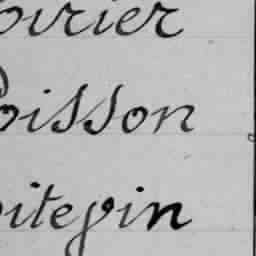 oirier
oisson
itevin